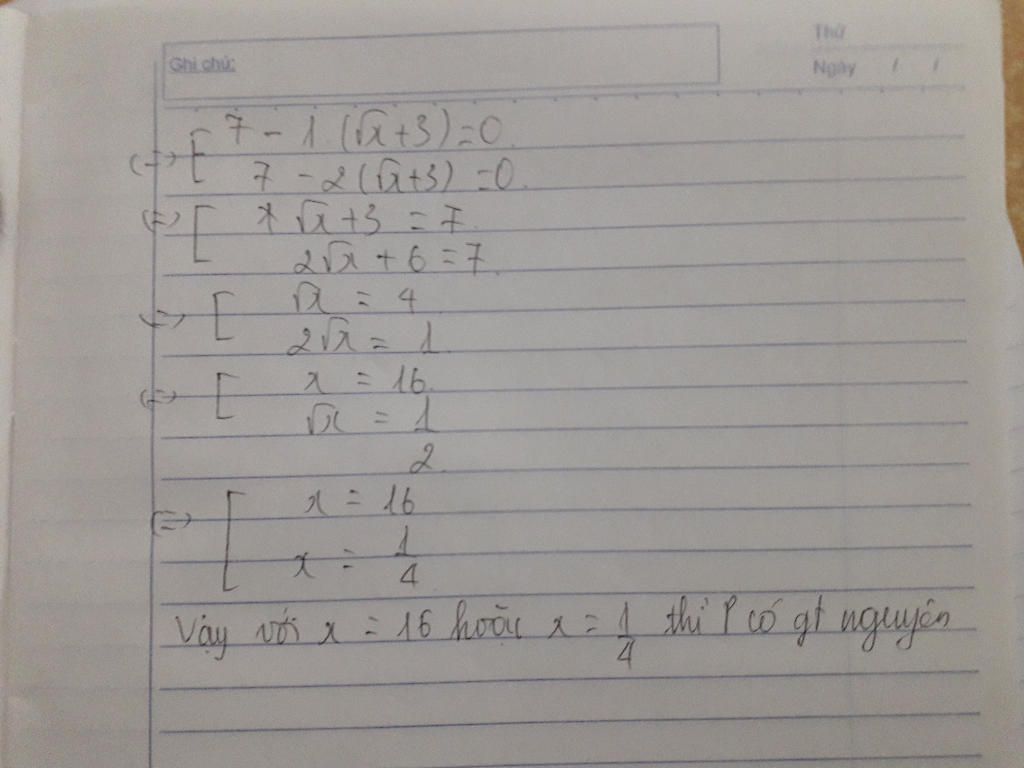 Ghi chú:
Thứ
Ngày / /
(=) [ 7 - 1.(√x+3)=0.
7 - 2(√x+3) =0.
(=) [ √x+3 = 7.
2√x + 6 = 7.
(=) [ √x = 4
2√x = 1
(=) [ x = 16.
√x = 1
2
(=) [ x = 16
x = 1/4
Vậy với x = 16 hoặc x = 1/4 thì P có gt nguyên